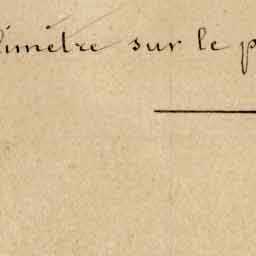 limètre sur le p